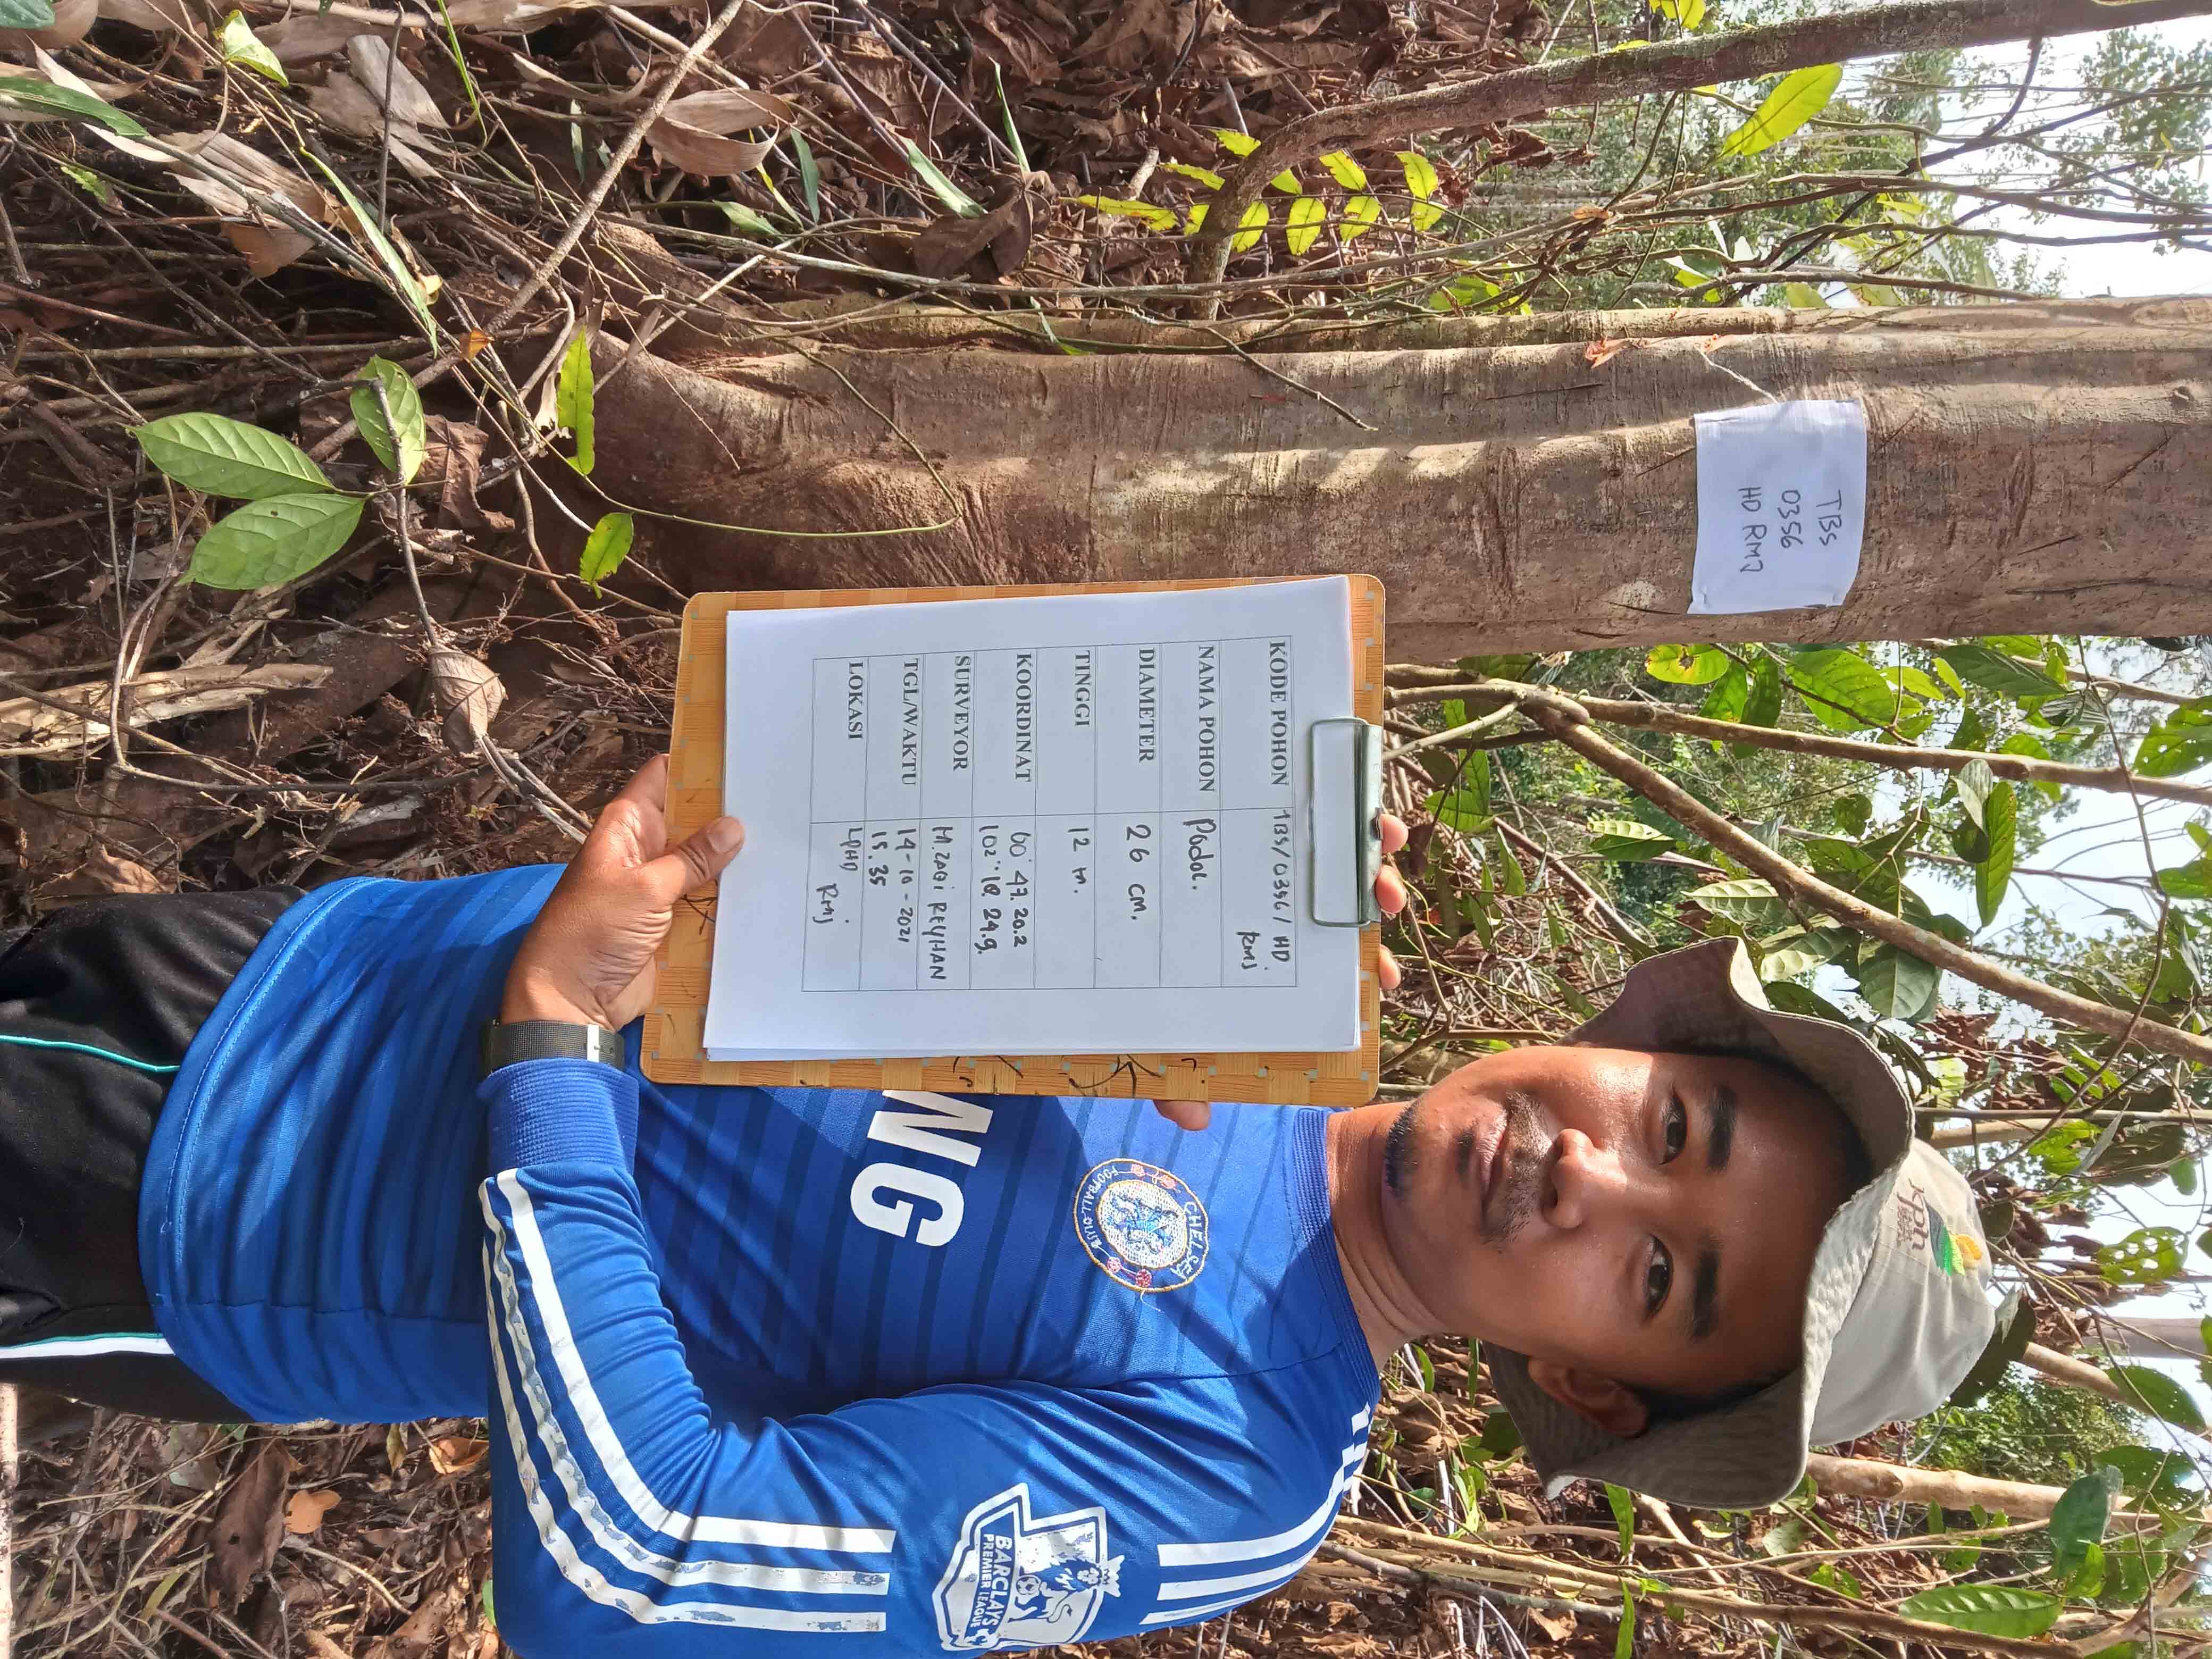 TBS
0356
HD RMJ
KODE POHON TBS/0356/HD
RMJ
NAMA POHON Podol.
DIAMETER 26 cm.
TINGGI 12 m.
KOORDINAT 00° 47. 20.2
102° 18 24.9.
SURVEYOR M. ZAQI REYHAN
TGL/WAKTU 14-10-2021
15.35
LOKASI LPHD
RMJ
NG
CHELSEA
FOOTBALL CLUB
BARCLAYS
PREMIER LEAGUE
kph